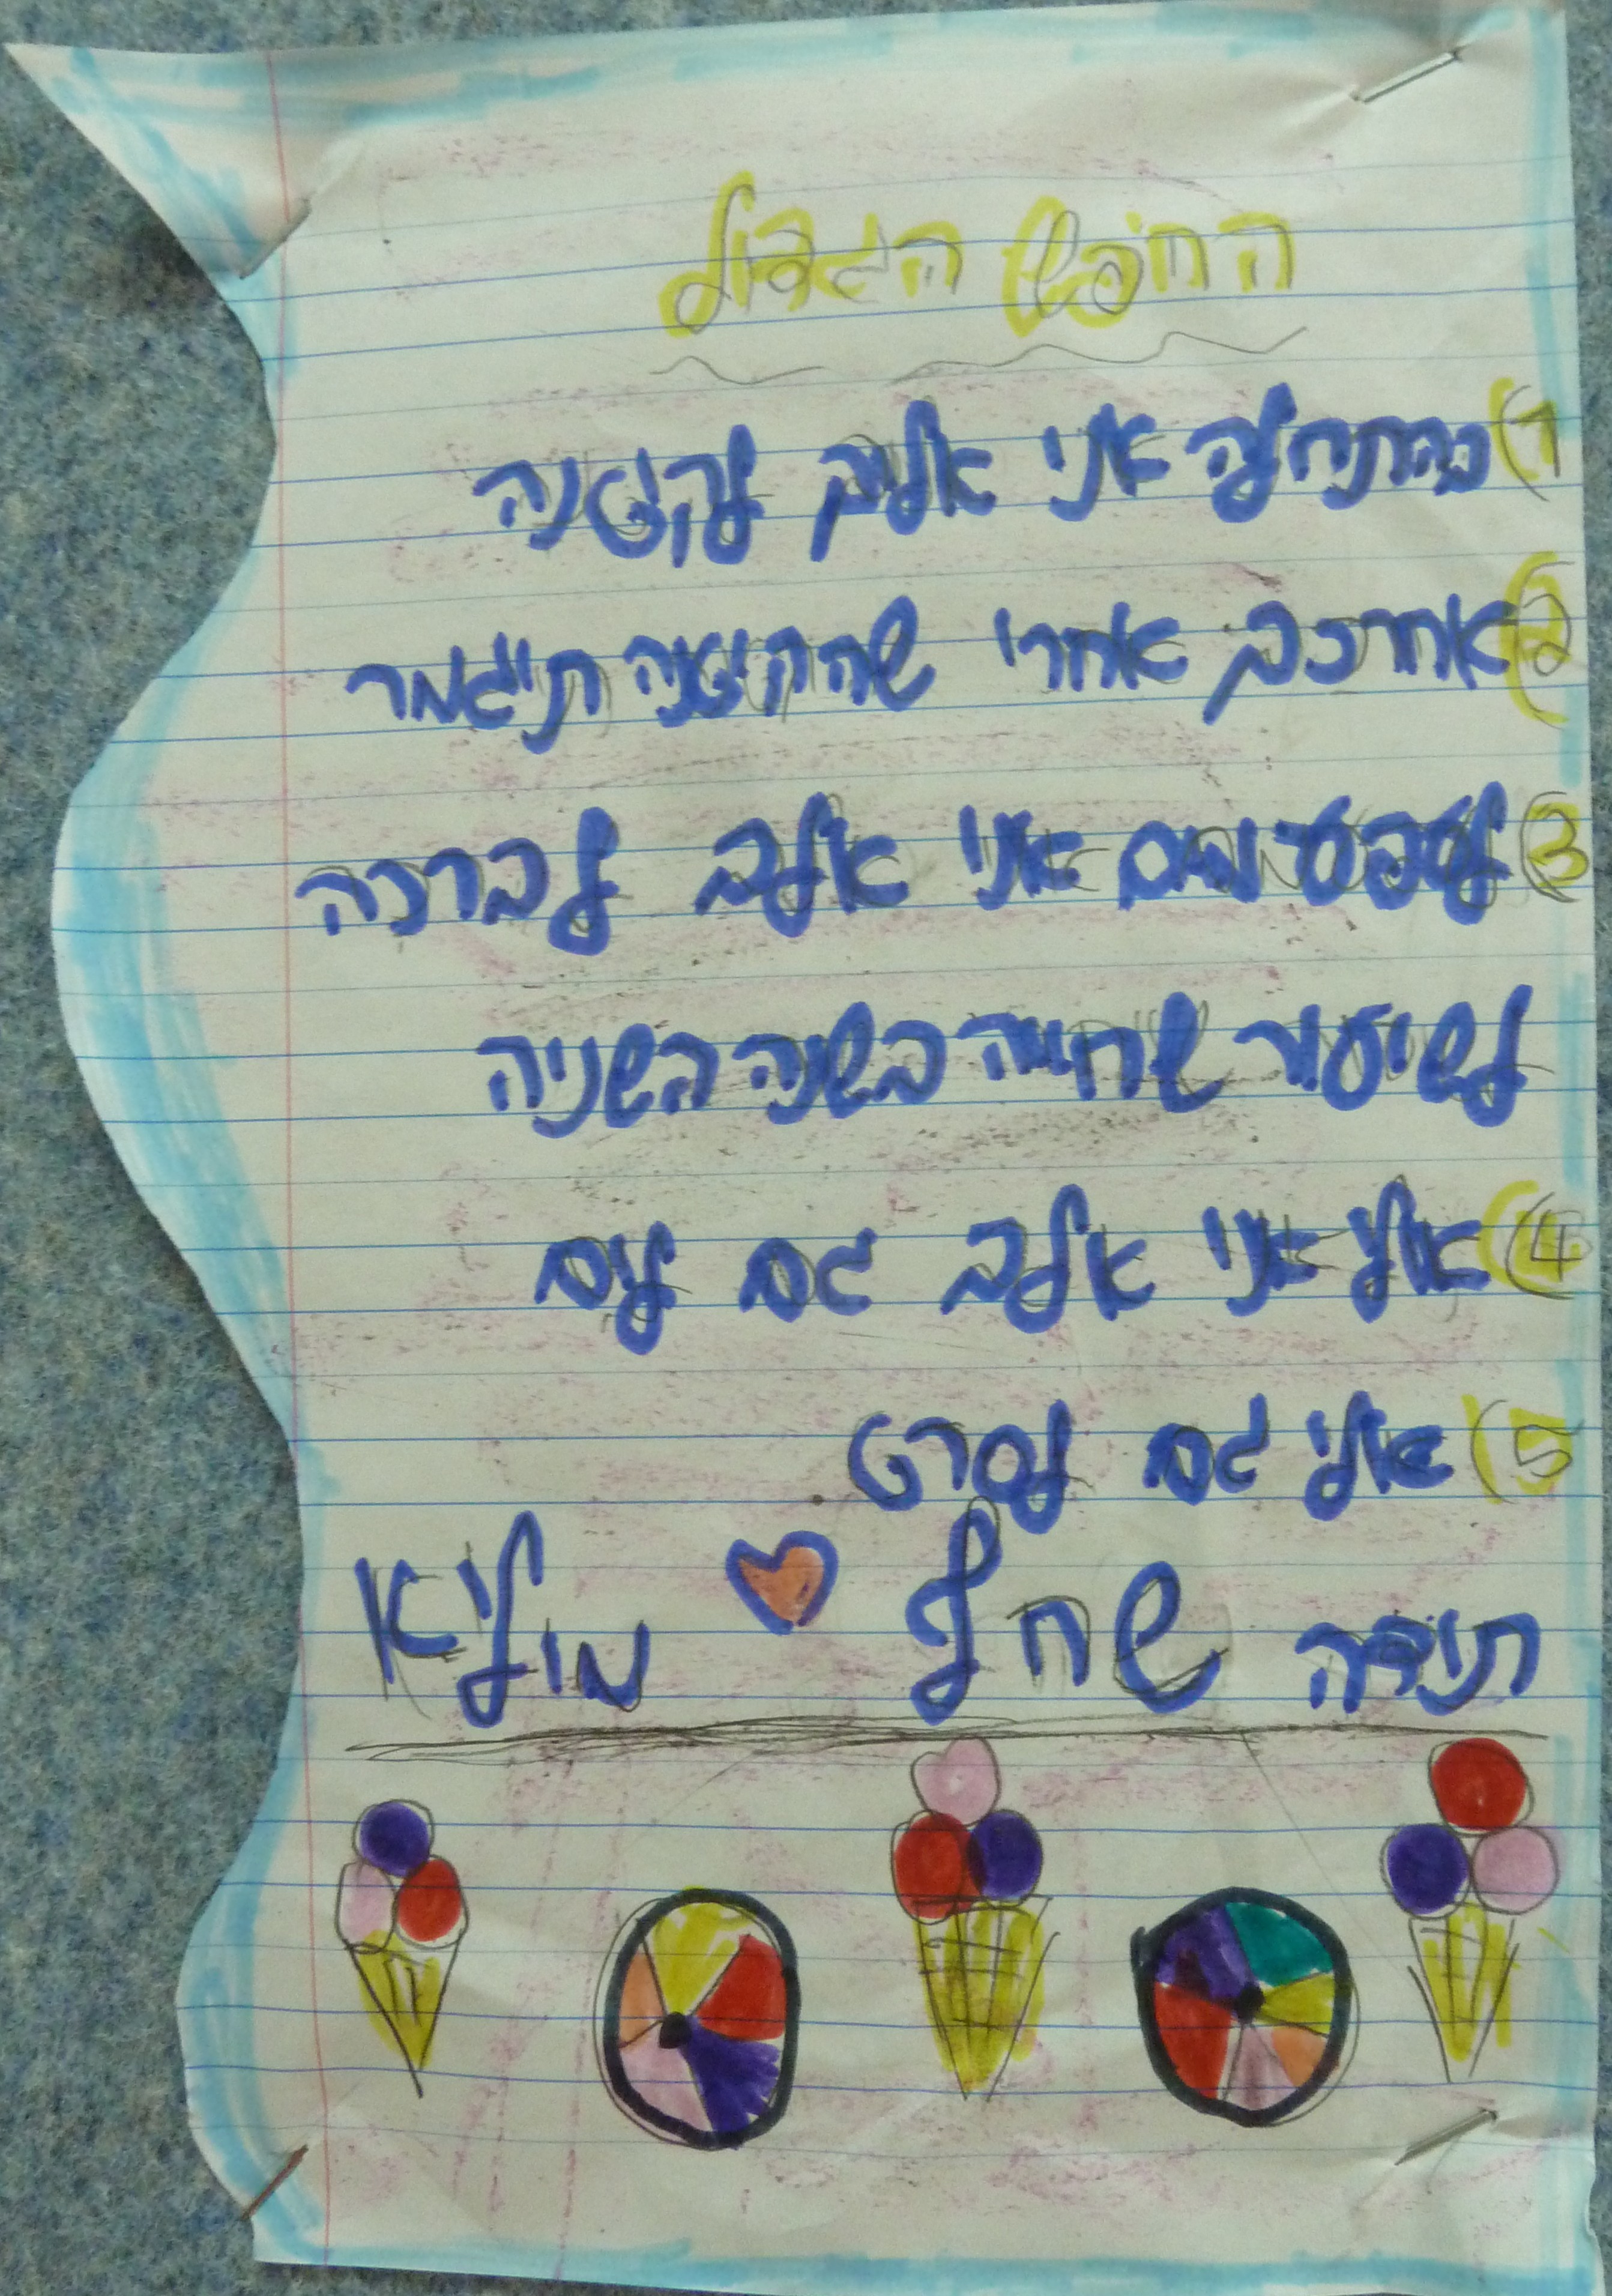 החופש הגדול
1) בהתחלה אני אלך לקטנה
2) אחרכך אחרי שהקיטנה תיגמר
3) לפעמים אני אלך לברכה
לשיעור שחייה בשנה השניה
4) אולי אני אלך גם לים
5) אולי גם לסרט
תודה שחל מוליא